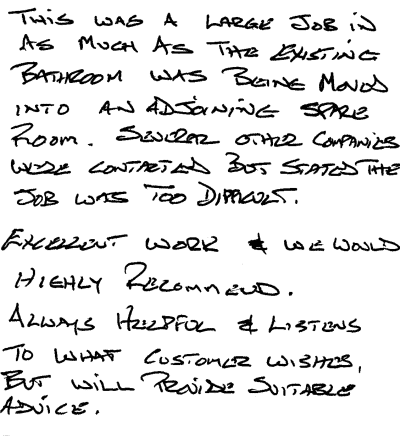 THIS WAS A LARGE JOB IN
AS MUCH AS THE EXISTING
BATHROOM WAS BEING MOVED
INTO AN ADJOINING SPARE
ROOM. SEVERAL OTHER COMPANIES
WERE CONTACTED BUT STATED THE
JOB WAS TOO DIFFICULT.
EXCELLENT WORK & WE WOULD
HIGHLY RECOMMEND.
ALWAYS HELPFUL & LISTENS
TO WHAT CUSTOMER WISHES,
BUT WILL PROVIDE SUITABLE
ADVICE.